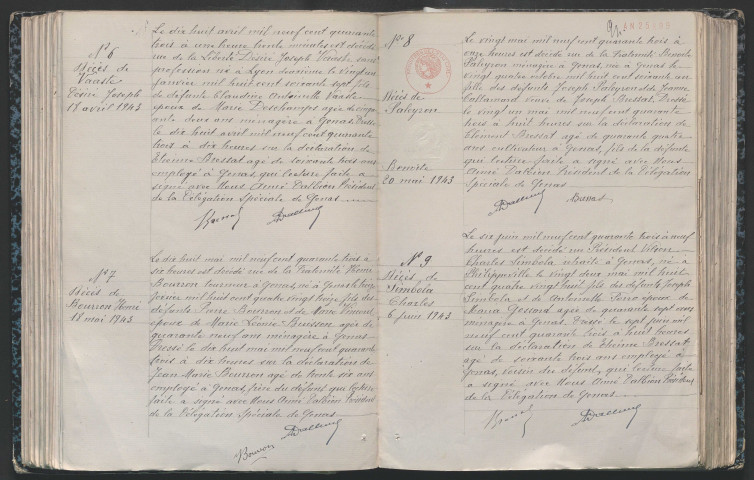 N° 6
Décès de
Vaast
Désiré Joseph
18 avril 1943
Le dix huit avril mil neuf cent quarante
trois à une heure trente minutes est décédé
rue de la Liberté Désiré Joseph Vaast, sans
profession né à Lyon deuxième le vingt un
janvier mil huit cent soixante sept fils
de défunte Antoinette Vaast
époux de Marie Deschamps agée de cinqu
ante deux ans ménagère à Genas. Dressé
le dix huit avril mil neuf cent quarante
trois à dix heures sur la déclaration de
Etienne Bressat agé de soixante trois ans
employé à Genas, qui lecture faite a
signé avec Nous Aimé Dalbion Président
de la Délégation Spéciale de Genas
N° 7
Décès de
Bourron Rémi
18 mai 1943
Le dix huit mai mil neuf cent quarante trois à
six heures est décédé rue de la Fraternité Rémi
Bourron tourneur à Genas, né à Genas le
mil huit cent quatre vingt treize fils des
défunts Pierre Bourron et de Marie
époux de Marie Léonie Buisson agée de
quarante neuf ans ménagère à Genas
Dressé le dix huit mai mil neuf cent quarante
trois à dix heures sur la déclaration de
Jean Marie Bourron agé de trente six ans
employé à Genas, frère du défunt, qui lecture
faite a signé avec Nous Aimé Dalbion Président
de la Délégation Spéciale de Genas
Bourron
N° 8
Décès de
Paleyron
Benoîte
20 mai 1943
Le vingt mai mil neuf cent quarante trois à
onze heures est décédée rue de la Fraternité Benoîte
Paleyron ménagère à Genas, née à Genas le
vingt quatre octobre mil huit cent soixante un
fille des défunts Joseph Paleyron et de Jeanne
veuve de Joseph Bussat. Dressé
le vingt un mai mil neuf cent quarante
trois à huit heures sur la déclaration de
Clément Bussat agé de quarante quatre
ans cultivateur à Genas, fils de la défunte
qui lecture faite a signé avec Nous
Aimé Dalbion Président de la Délégation
Spéciale de Genas
Bussat
N° 9
Décès de
Simbola
Charles
6 juin 1943
Le six juin mil neuf cent quarante trois à neuf
heures est décédé
Charles Simbola retraité à Genas, né à
Philippeville le vingt deux mai mil huit
cent quatre vingt huit fils des défunts Joseph
Simbola et de Antoinette époux de
Maria Gessard agée de quarante sept ans
ménagère à Genas. Dressé le sept juin mil
neuf cent quarante trois à huit heures
sur la déclaration de Etienne Bressat
agé de soixante trois ans employé à
Genas, voisin du défunt, qui lecture faite
a signé avec Nous Aimé Dalbion Président
de la Délégation de Genas